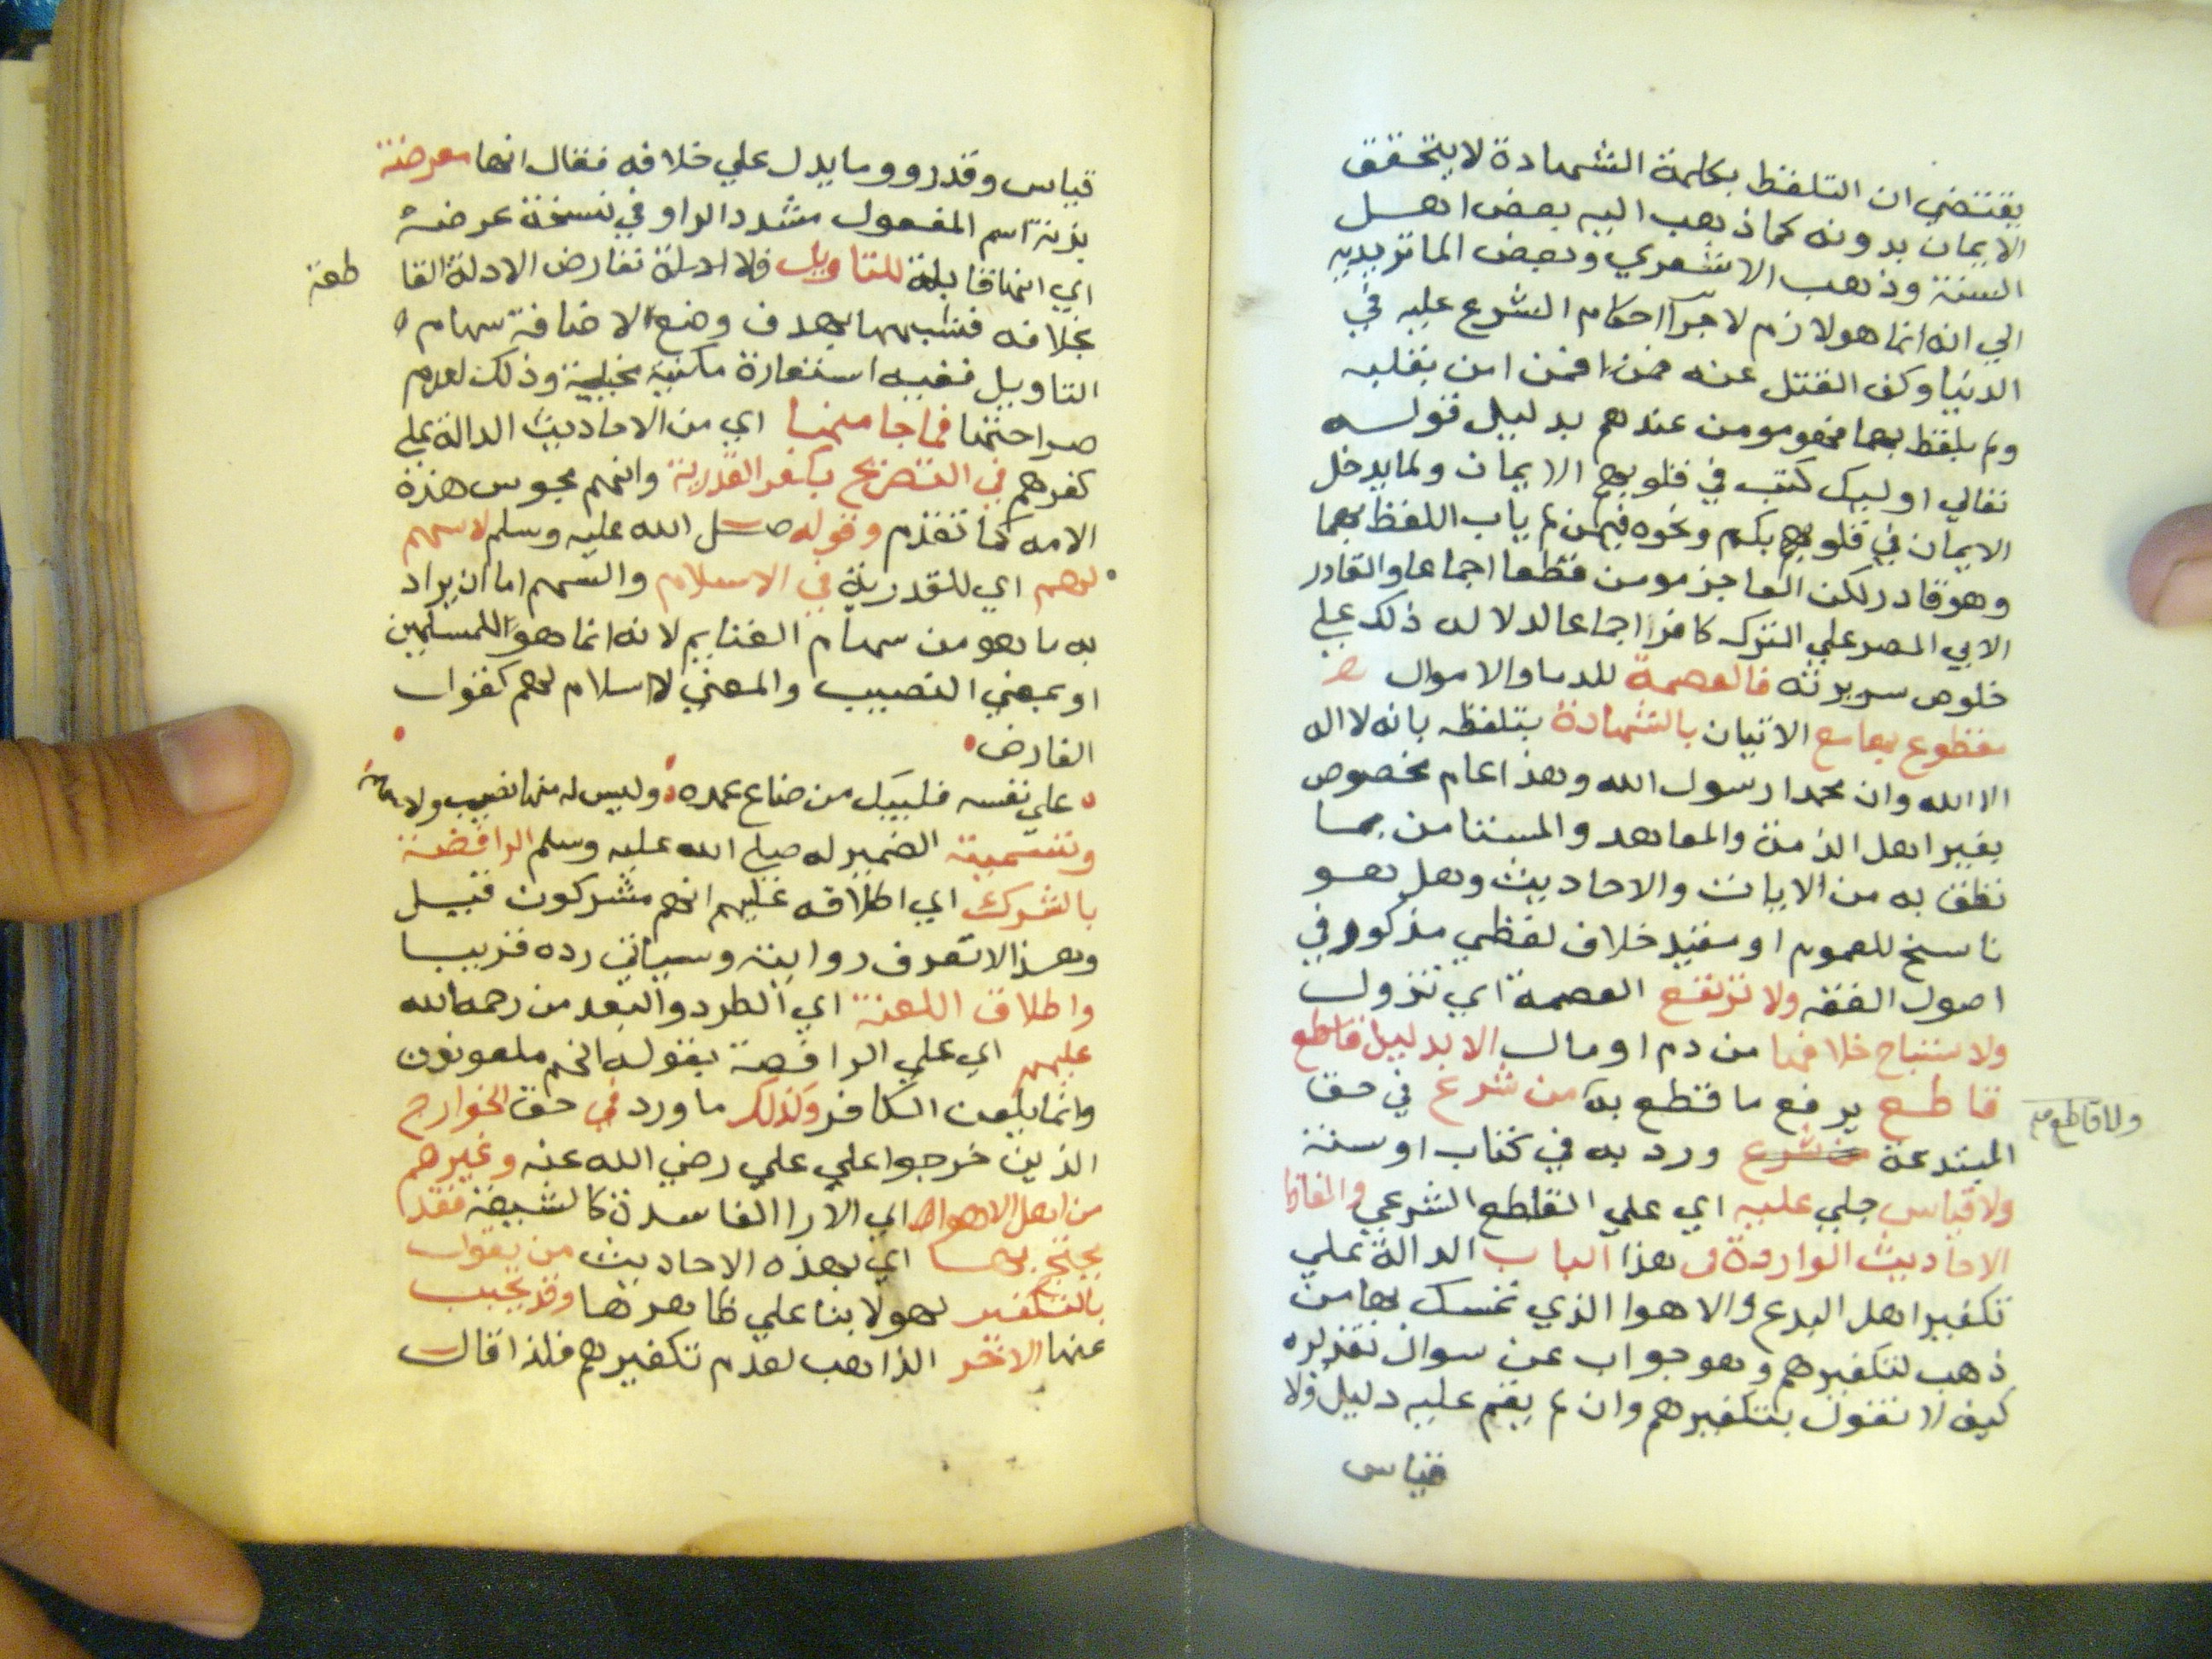 يقتضي ان التلفظ بكلمة الشهادة لا يتحقق
الايمان بدونه كما ذهب اليه بعض اهل
السنة وذهب الاشعري وبعض الماتريديه
الي انه انما هو لازم لاجرآ احكام الشرع عليه في
الدنيا وكف القتل عنه فمن امن بقلبه
ولم يلفظ بهما فهو مومن عندهم بدليل قوله
تعالي اوليك كتب في قلوبهم الايمان ولما يدخل
الايمان في قلوبكم ونحوه فيمن لم ياب اللفظ بهما
وهو قادر لكن العاجز مومن قطعا اجماعا والقادر
الابي المصر علي التركه كافر اجماعا لدلاله ذلك علي
خلوص سريرته فالعصمة للدما والاموال
مقطوع بها مع الاتيان بالشهادة بتلفظه بانه لا اله
الا الله وان محمدا رسول الله وهذا عام مخصوص
بغير اهل الذمة والمعاهد والمستامن بما
نطق به من الايات والاحاديث وهل هو
ناسخ للعموم او مقيد خلاف لفظي مذكور في
اصول الفقه ولا ترتفع العصمة اي تزول
ولا يستباح خلافها من دم او مال الا بدليل قاطع
قاطع يرفع ما قطع به من شرع في حق
ولا قاطع م
المبتدعة من شرع ورد به في كتاب او سنة
ولا قياس جلي عليه اي علي القاطع الشرعي والفاظ
الاحاديث الواردة في هذا الباب الدالة علي
تكفير اهل البدع والاهوا الذي تمسك بها من
ذهب لتكفيرهم وهو جواب عن سوال تقديره
كيف لا نقول بتكفيرهم وان لم يقم عليه دليل ولا
قياس
قياس وقد رووا ما يدل علي خلافه فقال انها معرضة
بزنة اسم المفعول مشدد الراو في نسخة عرضة
اي انها قابلة للتاويل فلا ادلة تعارض الادلة القا
طعة
بخلافه فشبهها بهدف وضع لاضافة سهام
التاويل ففيه استعارة مكنية مخيلية وذلك لعدم
صراحتها فما جا منها اي من الاحاديث الدالة علي
كفرهم في التصريح بكفر القدرية وانهم مجوس هذه
الامه كما تقدم وقوله صلي الله عليه وسلم لا سهم
لهم اي للقدرية في الاسلام والسهم اما ان يراد
به ما هو من سهام الغنايم لانه انما هو للمسلمين
او بمعني النصيب والمعني لا اسلام لهم كقول
الفارض
علي نفسه فليبك من ضاع عمره وليس له منها نصيب ولا
وتسميته الضمير له صلي الله عليه وسلم الرافضة
بالشرك اي اطلاقه عليهم انهم مشركون قيل
وهذا لا تعرف روايته وسياتي رده قريبا
واطلاق اللعنة اي الطرد والبعد من رحمه الله
عليهم اي علي الرافضة بقوله انهم ملعونون
وانما يلعن الكافر وكذلك ما ورد في حق الخوارج
الذين خرجوا علي علي رضي الله عنه وغيرهم
من اهل الاهوا اي الارا الفاسدة كالشيعة فقد
يحتج بها اي بهذه الاحاديث من يقول
بالتكفير لهولا بنا علي ظاهرها وقد يجيب
عنها الاخر الذاهب لعدم تكفيرهم فلذا قال